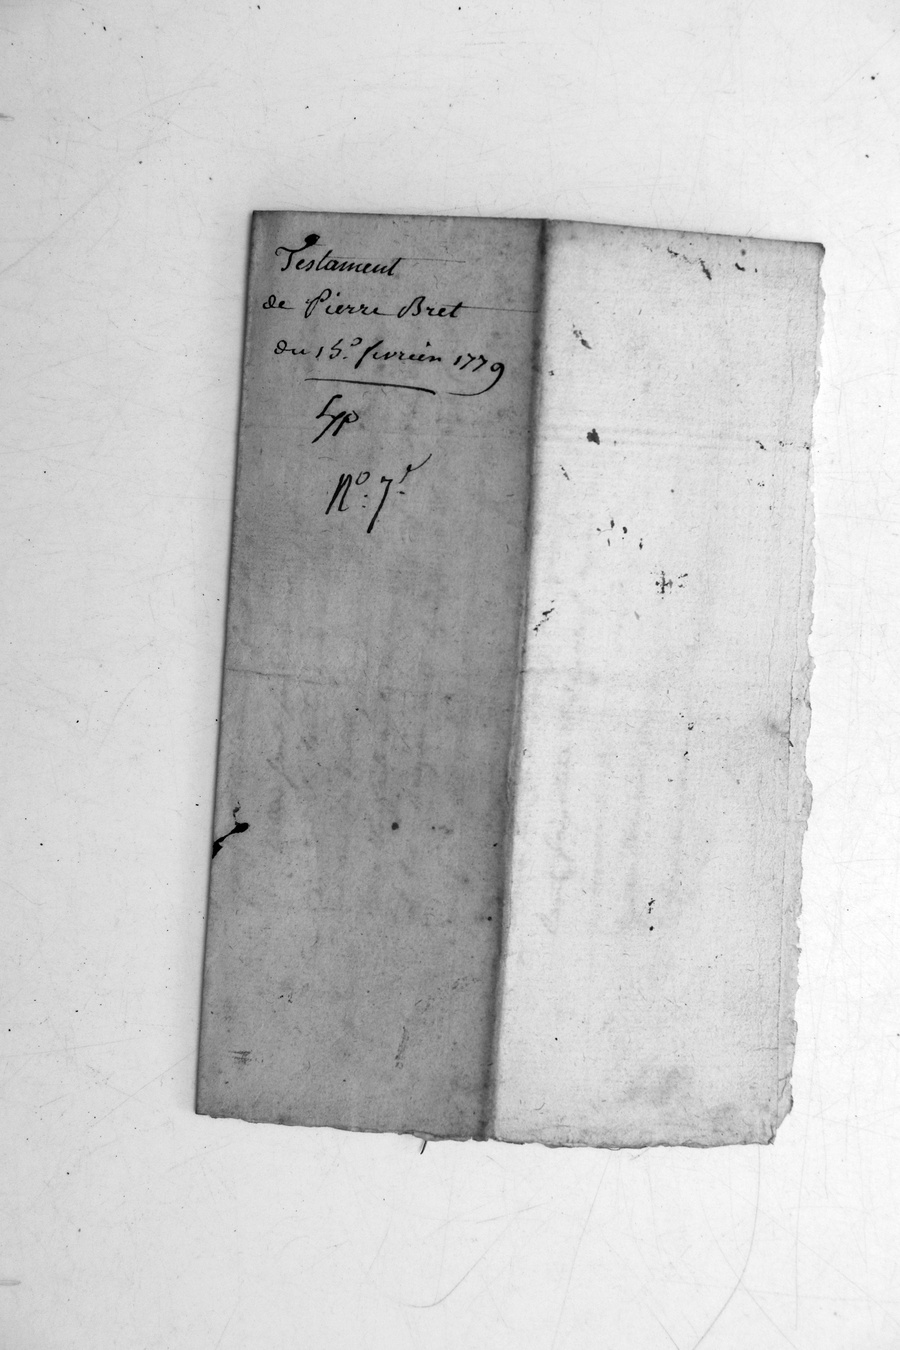 Testament
de Pierre Bret
du 15.e fevrier 1779
No. 7